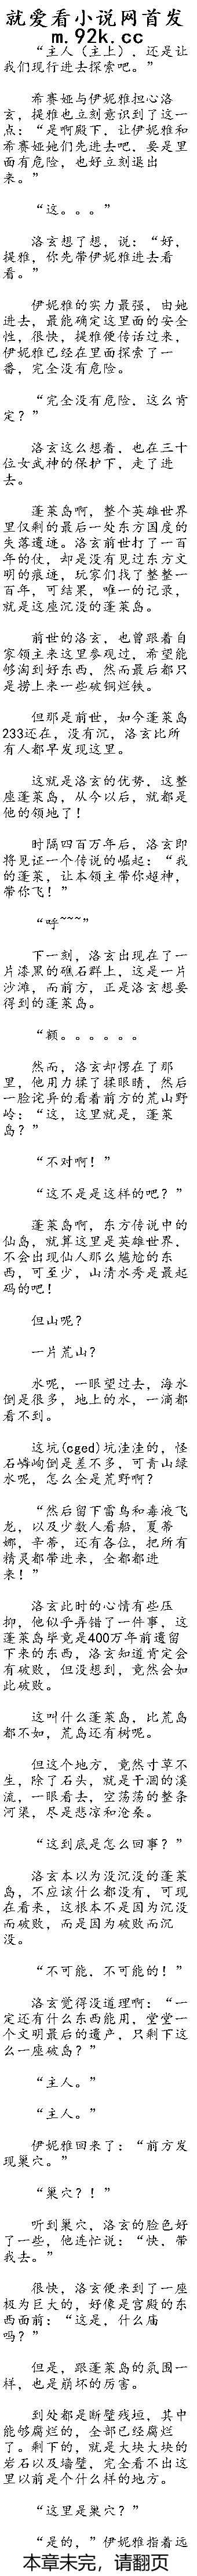 就爱看小说网首发
m.92k.cc
“主人（主上），还是让
我们现行进去探索吧。”
希赛娅与伊妮雅担心洛
玄，提雅也立刻意识到了这一
点：“是啊殿下，让伊妮雅和
希赛娅她们先进去吧，要是里
面有危险，也好立刻退出
来。”
“这。。。”
洛玄想了想，说：“好，
提雅，你先带伊妮雅进去看
看。”
伊妮雅的实力最强，由她
进去，最能确定这里面的安全
性，很快，提雅便传话过来，
伊妮雅已经在里面探索了一
番，完全没有危险。
“完全没有危险，这么肯
定？”
洛玄这么想着，也在三十
位女武神的保护下，走了进
去。
蓬莱岛啊，整个英雄世界
里仅剩的最后一处东方国度的
失落遗迹。洛玄前世打了一百
年的仗，却是没有见过东方文
明的痕迹，玩家们找了整整一
百年，可结果，唯一的记录，
就是这座沉没的蓬莱岛。
前世的洛玄，也曾跟着自
家领主来这里参观过，希望能
够淘到好东西，然而最后都只
是捞上来一些破铜烂铁。
但那是前世，如今蓬莱岛
233还在，没有沉，洛玄比所
有人都早发现这里。
这就是洛玄的优势，这整
座蓬莱岛，从今以后，就都是
他的领地了！
时隔四百万年后，洛玄即
将见证一个传说的崛起：“我
的蓬莱，让本领主带你超神，
带你飞！”
“呼~~~”
下一刻，洛玄出现在了一
片漆黑的礁石群上，这是一片
沙滩，而前方，正是洛玄想要
得到的蓬莱岛。
“额。。。。。。
然而，洛玄却愣在了那
里，他用力揉了揉眼睛，然后
一脸诧异的看着前方的荒山野
岭：“这，这里就是，蓬莱
岛？”
“不对啊！”
“这不是是这样的吧？”
蓬莱岛啊，东方传说中的
仙岛，就算这里是英雄世界，
不会出现仙人那么尴尬的东
西，可至少，山清水秀是最起
码的吧！
但山呢？
一片荒山？
水呢，一眼望过去，海水
倒是很多，地上的水，一滴都
看不到。
这坑(cged)坑洼洼的，怪
石嶙峋倒是差不多，可青山绿
水呢，怎么全是荒野啊？
“然后留下雷鸟和毒液飞
龙，以及少数人看船，夏蒂
娜，辛蒂，还有各位，把所有
精灵都带进来，全都都进
来！”
洛玄此时的心情有些压
抑，他似乎弄错了一件事，这
蓬莱岛毕竟是400万年前遗留
下来的东西，洛玄知道肯定会
有破败，但没想到，竟然会如
此破败。
这叫什么蓬莱岛，比荒岛
都不如，荒岛还有树呢。
但这个地方，竟然寸草不
生，除了石头，就是干涸的溪
流，一眼看去，空荡荡的整条
河渠，尽是悲凉和沧桑。
“这到底是怎么回事？”
洛玄本以为没沉没的蓬莱
岛，不应该什么都没有，可现
在看来，这根本不是因为沉没
而破败，而是因为破败而沉
没。
“不可能，不可能的！”
洛玄觉得没道理啊：“一
定还有什么东西能用，堂堂一
个文明最后的遗产，只剩下这
么一座破岛？”
“主人。”
“主人。”
伊妮雅回来了：“前方发
现巢穴。”
“巢穴？！”
听到巢穴，洛玄的脸色好
了一些，他连忙说：“快，带
我去。”
很快，洛玄便来到了一座
极为巨大的，好像是宫殿的东
西面前：“这是，什么庙
吗？”
但是，跟蓬莱岛的氛围一
样，也是崩坏的厉害。
到处都是断壁残垣，其中
能够腐烂的，全部已经腐烂
了。剩下的，就是大块大块的
岩石以及墙壁，完全看不出这
里以前是个什么样的地方。
“这里是巢穴？”
“是的，”伊妮雅指着远
本章未完，请翻页